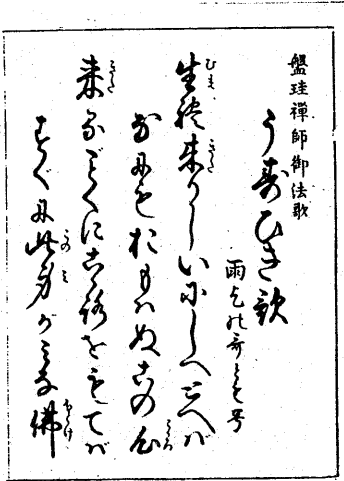 盤珪禪師御法歌
うすひき歌
雨乞の哥とも号
生れ来りしいにしへとへば
なにもおもはぬこの心
来るごとくに心をもてば
すぐに此身が佛